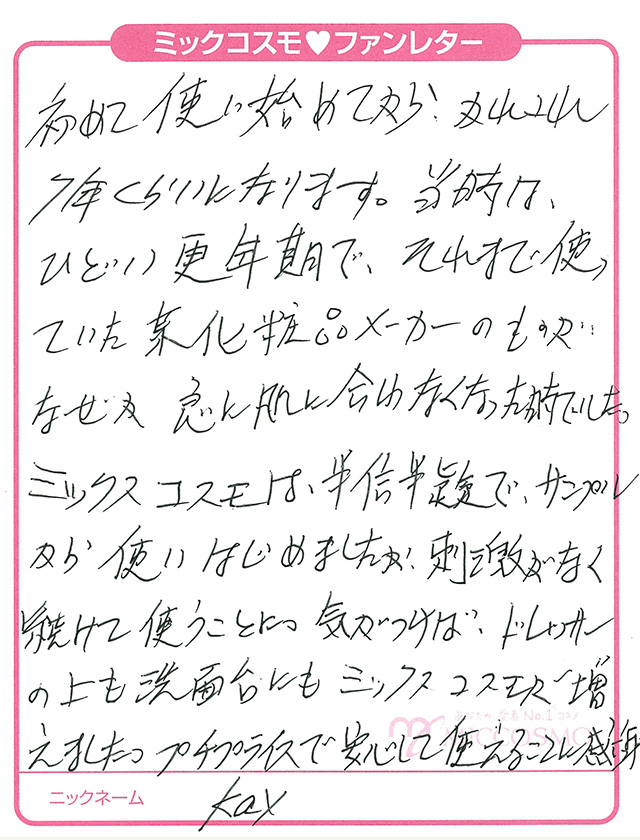 ミックコスモ♥ファンレター
初めて使い始めてから、かれこれ
7年くらいになります。当時は、
ひどい更年期で、それまで使っ
ていた某化粧品メーカーのものが
なぜか急に肌に合わなくなった時でした。
ミックスコスモは、半信半疑で、サンプル
から使いはじめましたが、刺激がなく
続けて使うことに。気がつけば、ドレッサー
の上も洗面台にもミックスコスモが増
えました。プチプライスで安心して使えることに感謝
あなたの 愛着 No.1 コスメ
MICCOSMO
ニックネーム Kay